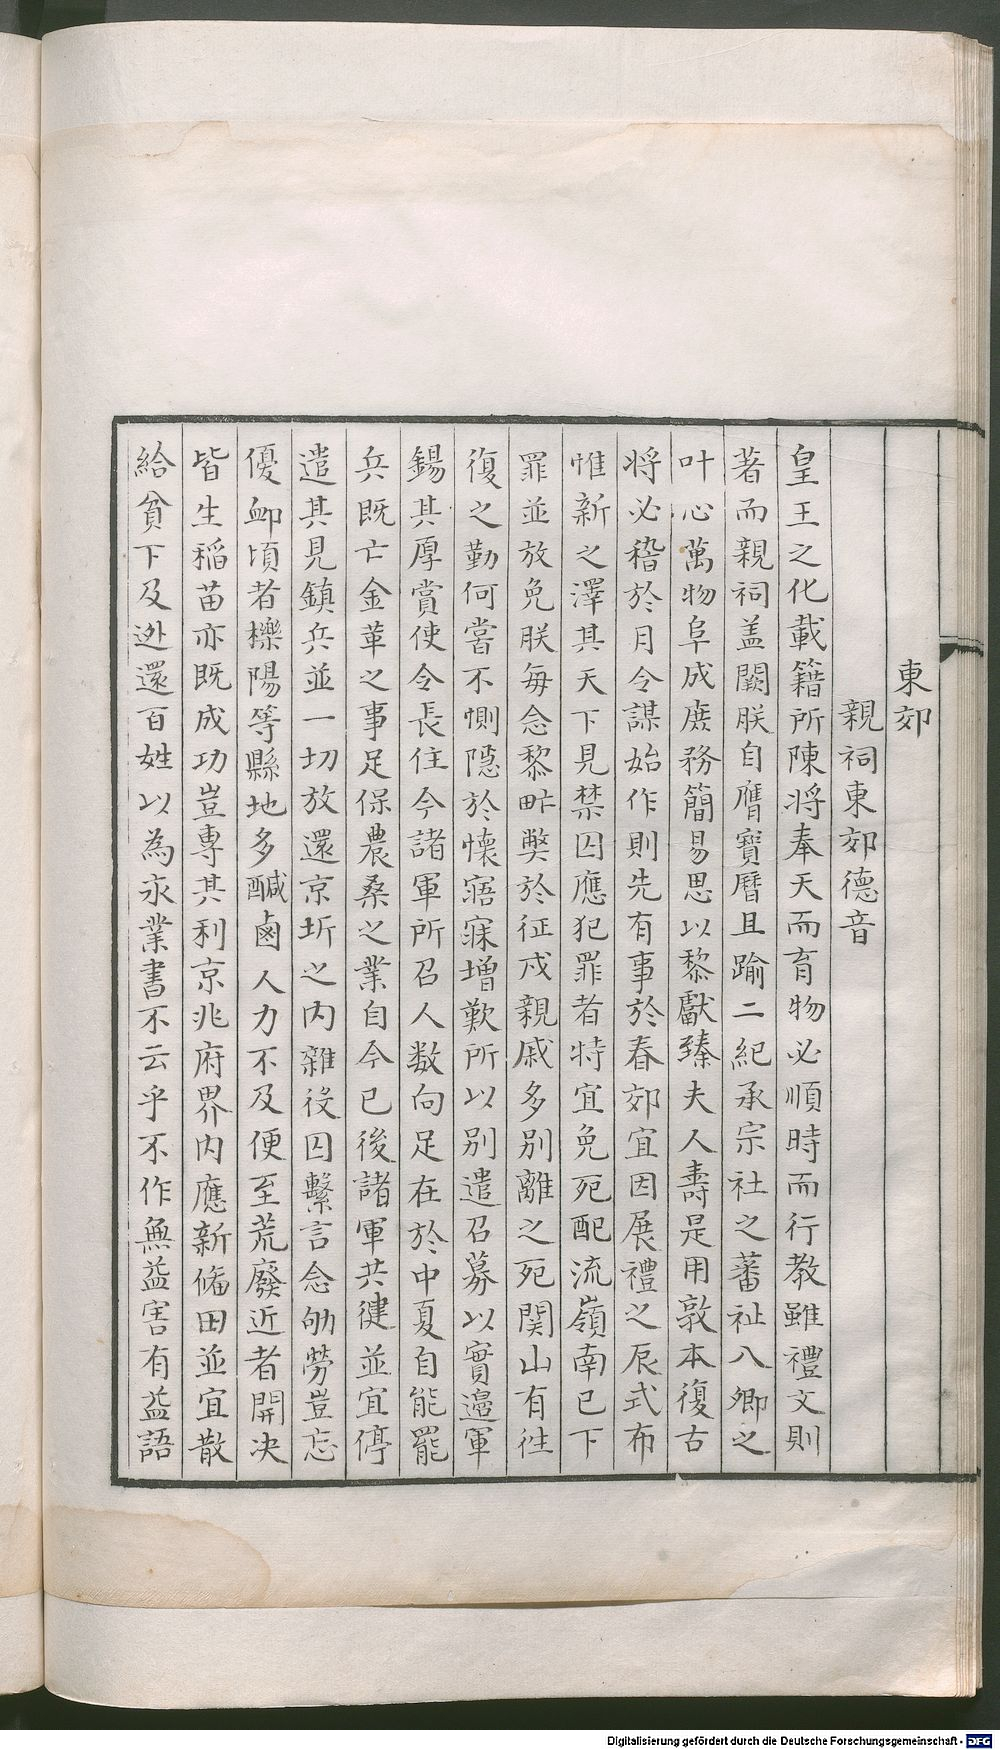 東郊
親祠東郊德音
皇王之化載籍所陳将奉天而育物必順時而行教雖禮文則
著而親祠盖闕朕自膺寶曆且踰二紀承宗社之蕃祉八卿之
叶心萬物阜成庶務簡易思以黎獻臻夫人壽是用敦本復古
将必稽於月令謀始作則先有事於春郊宜因展禮之辰式布
惟新之澤其天下見禁囚應犯罪者特宜免死配流嶺南已下
罪並放免朕每念黎甿獘於征戍親戚多別離之死関山有徃
復之勤何嘗不惻隱於懷寤寐增歎所以別遣召募以實邉軍
錫其厚賞使令長住今諸軍所召人数向足在於中夏自能罷
兵既亡金革之事足保農桑之業自今已後諸軍共健並宜停
遣其見鎮兵並一切放還京圻之内雜役囚繫言念劬勞豈忘
優卹頃者櫟陽等縣地多鹹鹵人力不及便至荒廢近者開决
皆生稲苗亦既成功豈專其利京兆府界内應新偹田並宜散
給貧下及迯還百姓以為永業書不云乎不作無益害有益語
Digitalisierung gefördert durch die Deutsche Forschungsgemeinschaft - DFG